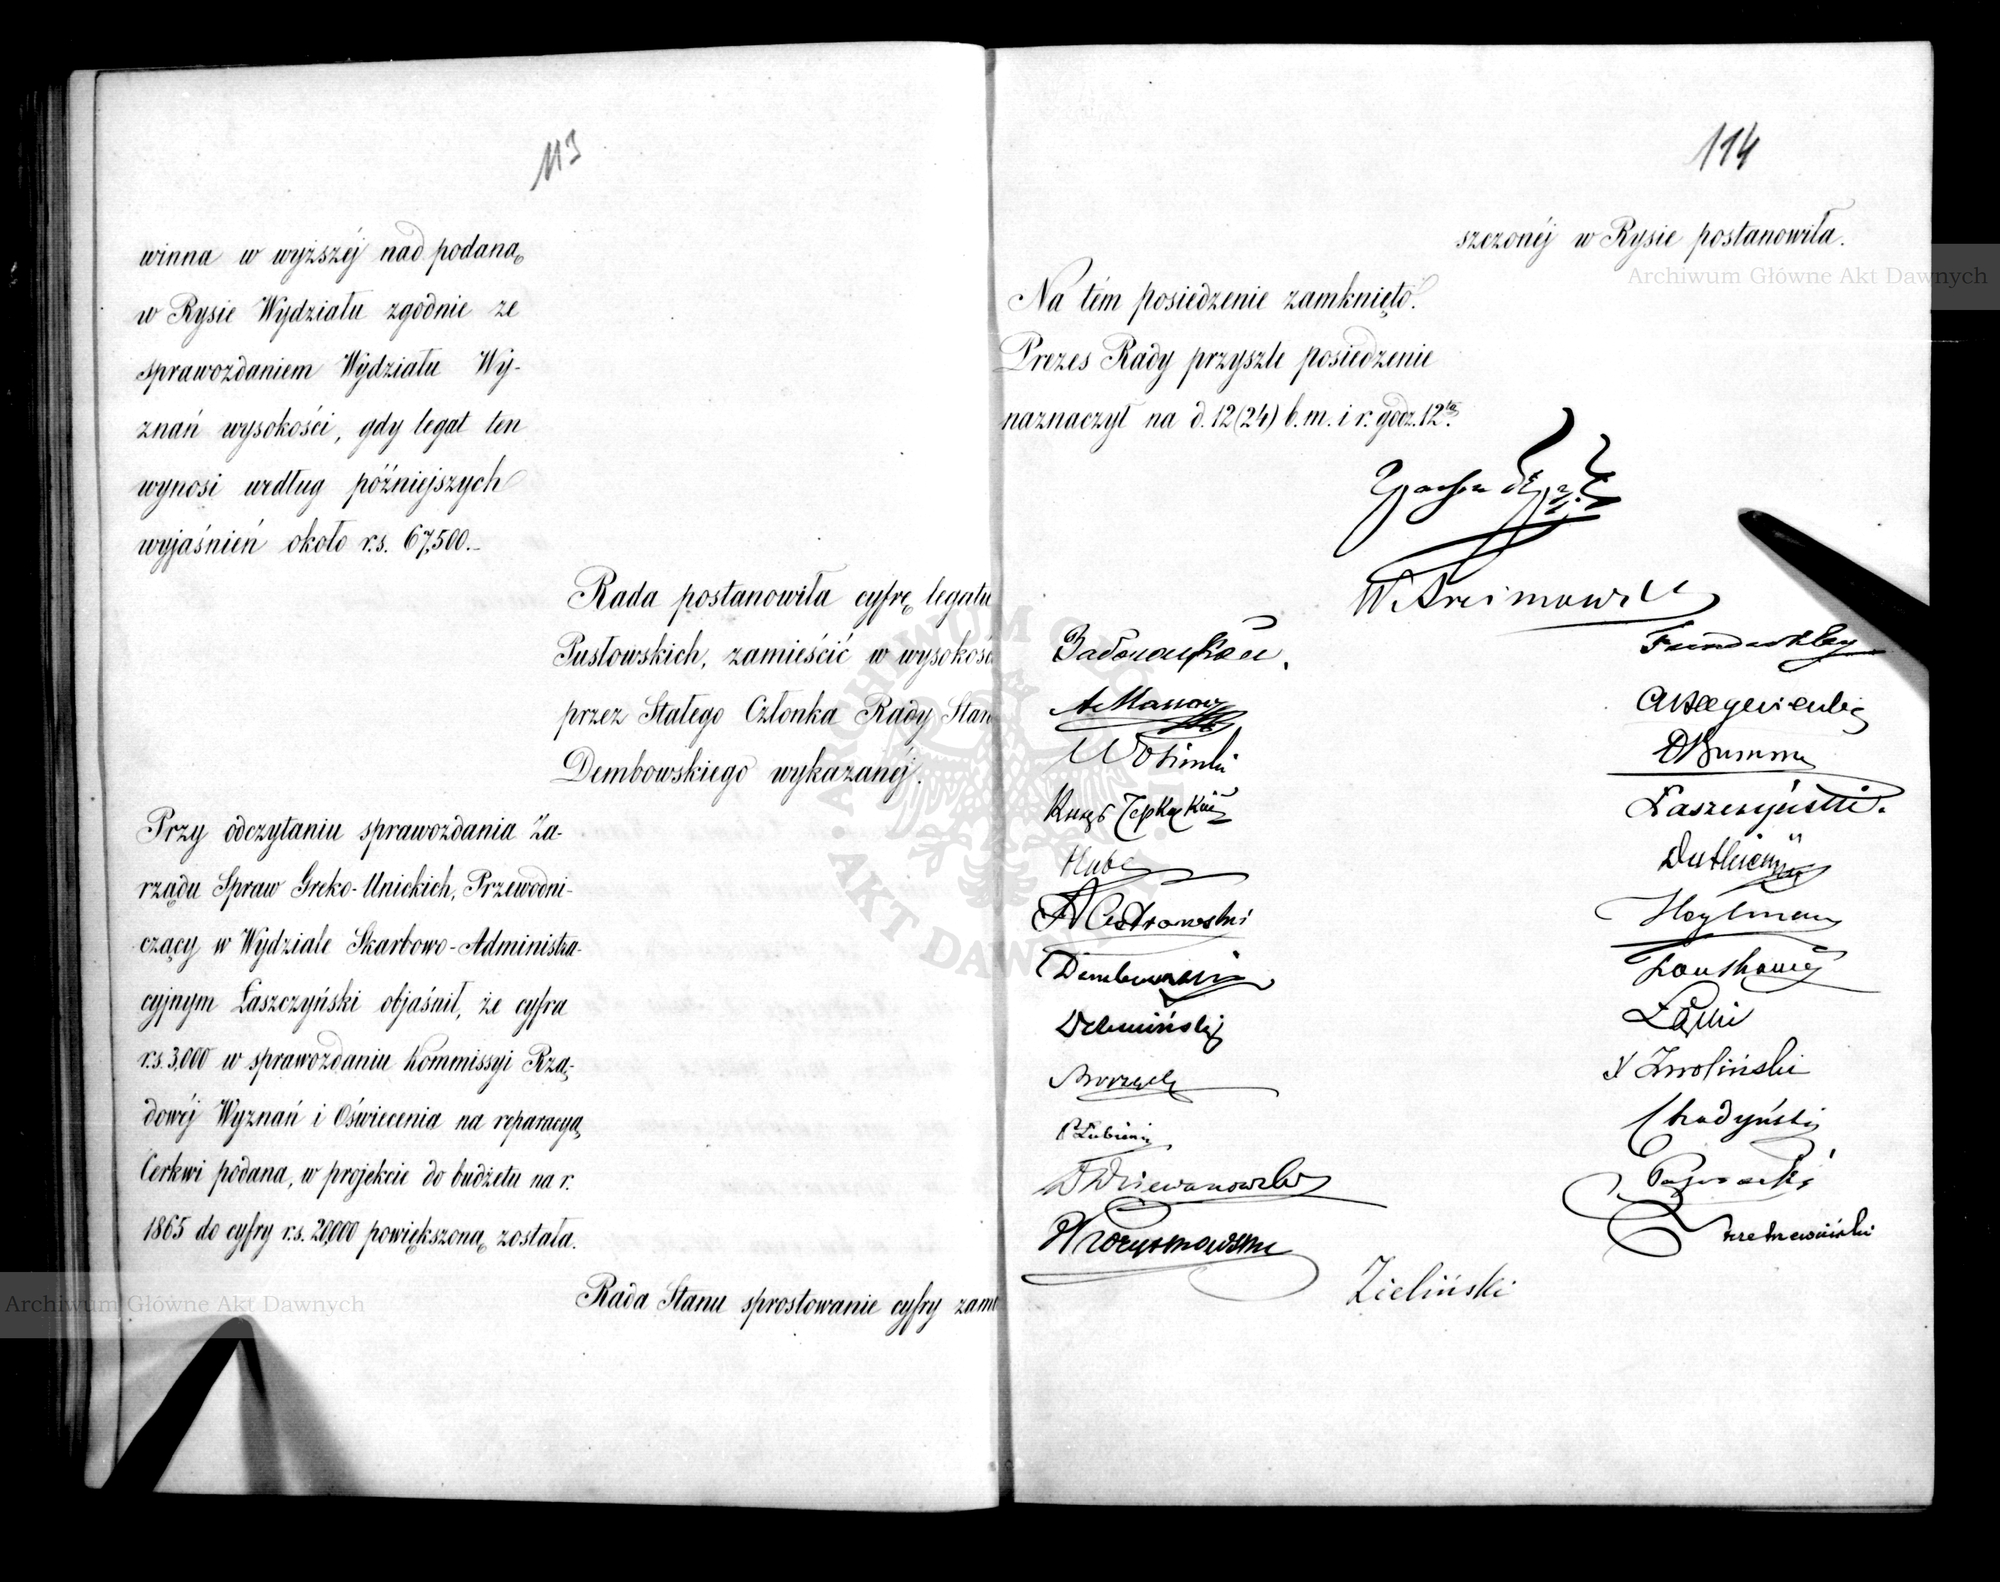 113
winna w wyższéj nad podaną
w Rysie Wydziału zgodnie ze
sprawozdaniem Wydziału Wy-
znań wysokości, gdy legat ten
wynosi według późniejszych
wyjaśnień około r.s. 67,500.–
Rada postanowiła cyfrę legatu
Pusłowskich, zamieścić w wysokoś
przez Stałego Członka Rady Stan
Dembowskiego wykazanéj.
Przy odczytaniu sprawozdania Za-
rządu Spraw Greko-Unickich, Przewodni-
czący w Wydziale Skarbowo-Administra-
cyjnym Łaszczyński objaśnił, że cyfra
r.s. 3,000 w sprawozdaniu Kommissyi Rzą-
dowéj Wyznań i Oświecenia na reparacyą
Cerkwi podana, w projekcie do budżetu na r.
1865 do cyfry r.s. 20,000 powiększoną została.
Rada Stanu sprostowanie cyfry zam
114
szczonéj w Rysie postanowiła.
Na tém posiedzenie zamknięto.
Prezes Rady przyszłe posiedzenie
naznaczył na d. 12 (24) b.m. i r. godz. 12tą.
W. Arcimowicz
Hube
A Ostrowski
Dembowski
P Łubieński
D Dziewanowski
Łaszczyński
Łąski
Zwoliński
Chądzyński
Zieliński
Archiwum Główne Akt Dawnych
Archiwum Główne Akt Dawnych
ARCHIWUM GŁÓWNE AKT DAWNYCH